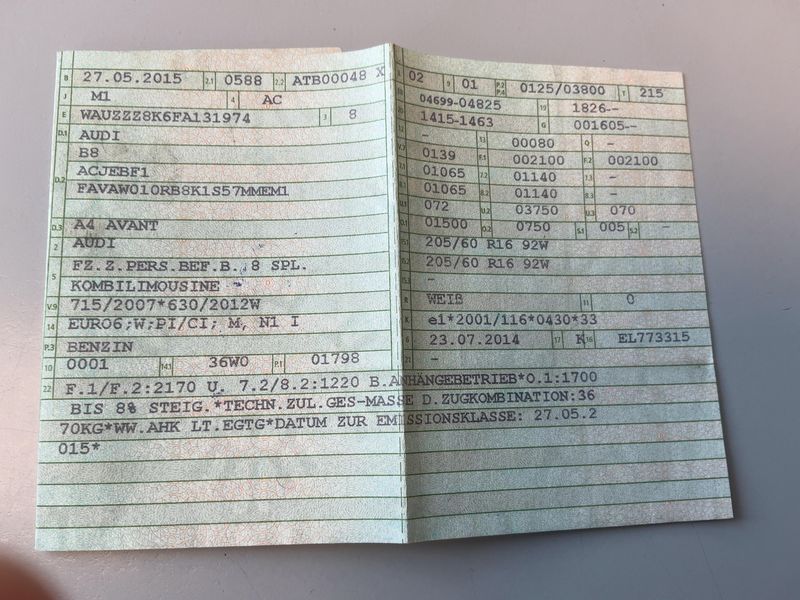 B 27.05.2015 2.1 0588 2.2 ATB00048 X
J M1 4 AC
E WAUZZZ8K6FA131974 3 8
D.1 AUDI
B8
D.2 ACJEBF1
FAVAW010RB8K1S57MMEM1
D.3 A4 AVANT
2 AUDI
5 FZ.Z.PERS.BEF.B. 8 SPL.
KOMBILIMOUSINE -
V.9 715/2007*630/2012W
14 EURO6;W;PI/CI; M, N1 I
P.3 BENZIN
10 0001 14.1 36W0 P.1 01798
02 9 01 P.2 P.4 0125/03800 T 215
04699-04825 19 1826--
1415-1463 G 001605--
- 13 00080 Q -
V.7 0139 F.1 002100 F.2 002100
7.1 01065 7.2 01140 7.3 -
8.1 01065 8.2 01140 8.3 -
U.1 072 U.2 03750 U.3 070
O.1 01500 O.2 0750 S.1 005 S.2 -
15.1 205/60 R16 92W
15.2 205/60 R16 92W
-
R WEIß 11 0
K e1*2001/116*0430*33
6 23.07.2014 17 K 16 EL773315
21 -
22 F.1/F.2:2170 U. 7.2/8.2:1220 B.ANHÄNGEBETRIEB*O.1:1700
BIS 8% STEIG.*TECHN.ZUL.GES-MASSE D.ZUGKOMBINATION:36
70KG*WW.AHK LT.EGTG*DATUM ZUR EMISSIONSKLASSE: 27.05.2
015*